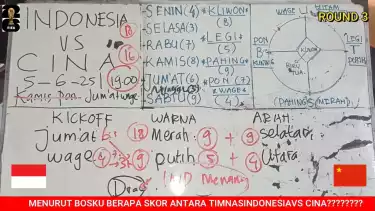 ROUND 3
INDONESIA
VS
CINA
5-6-25
Kamis Pon Jum'at wage
18
16
19:00
SENIN (4)
SELASA (3)
RABU (7)
KAMIS (8)
JUMAT (6)
SABTU (9)
* KLIWON *
(8)
* LEGI *
(5)
* PAHING *
(9)
* PON (7) *
* WAGE *
(4)
WAGE U HITAM
PON B KUNING
KLIWON
LEGI T PUTIH
(PAHING) S (MERAH)
KICKOFF WARNA ARAH
Jum'at 6 18 Merah 9 + 9 selatan
wage 4 9 putih 5 + 4 Utara
Draw
MENURUT BOSKU BERAPA SKOR ANTARA TIMNASINDONESIAVS CINA????????